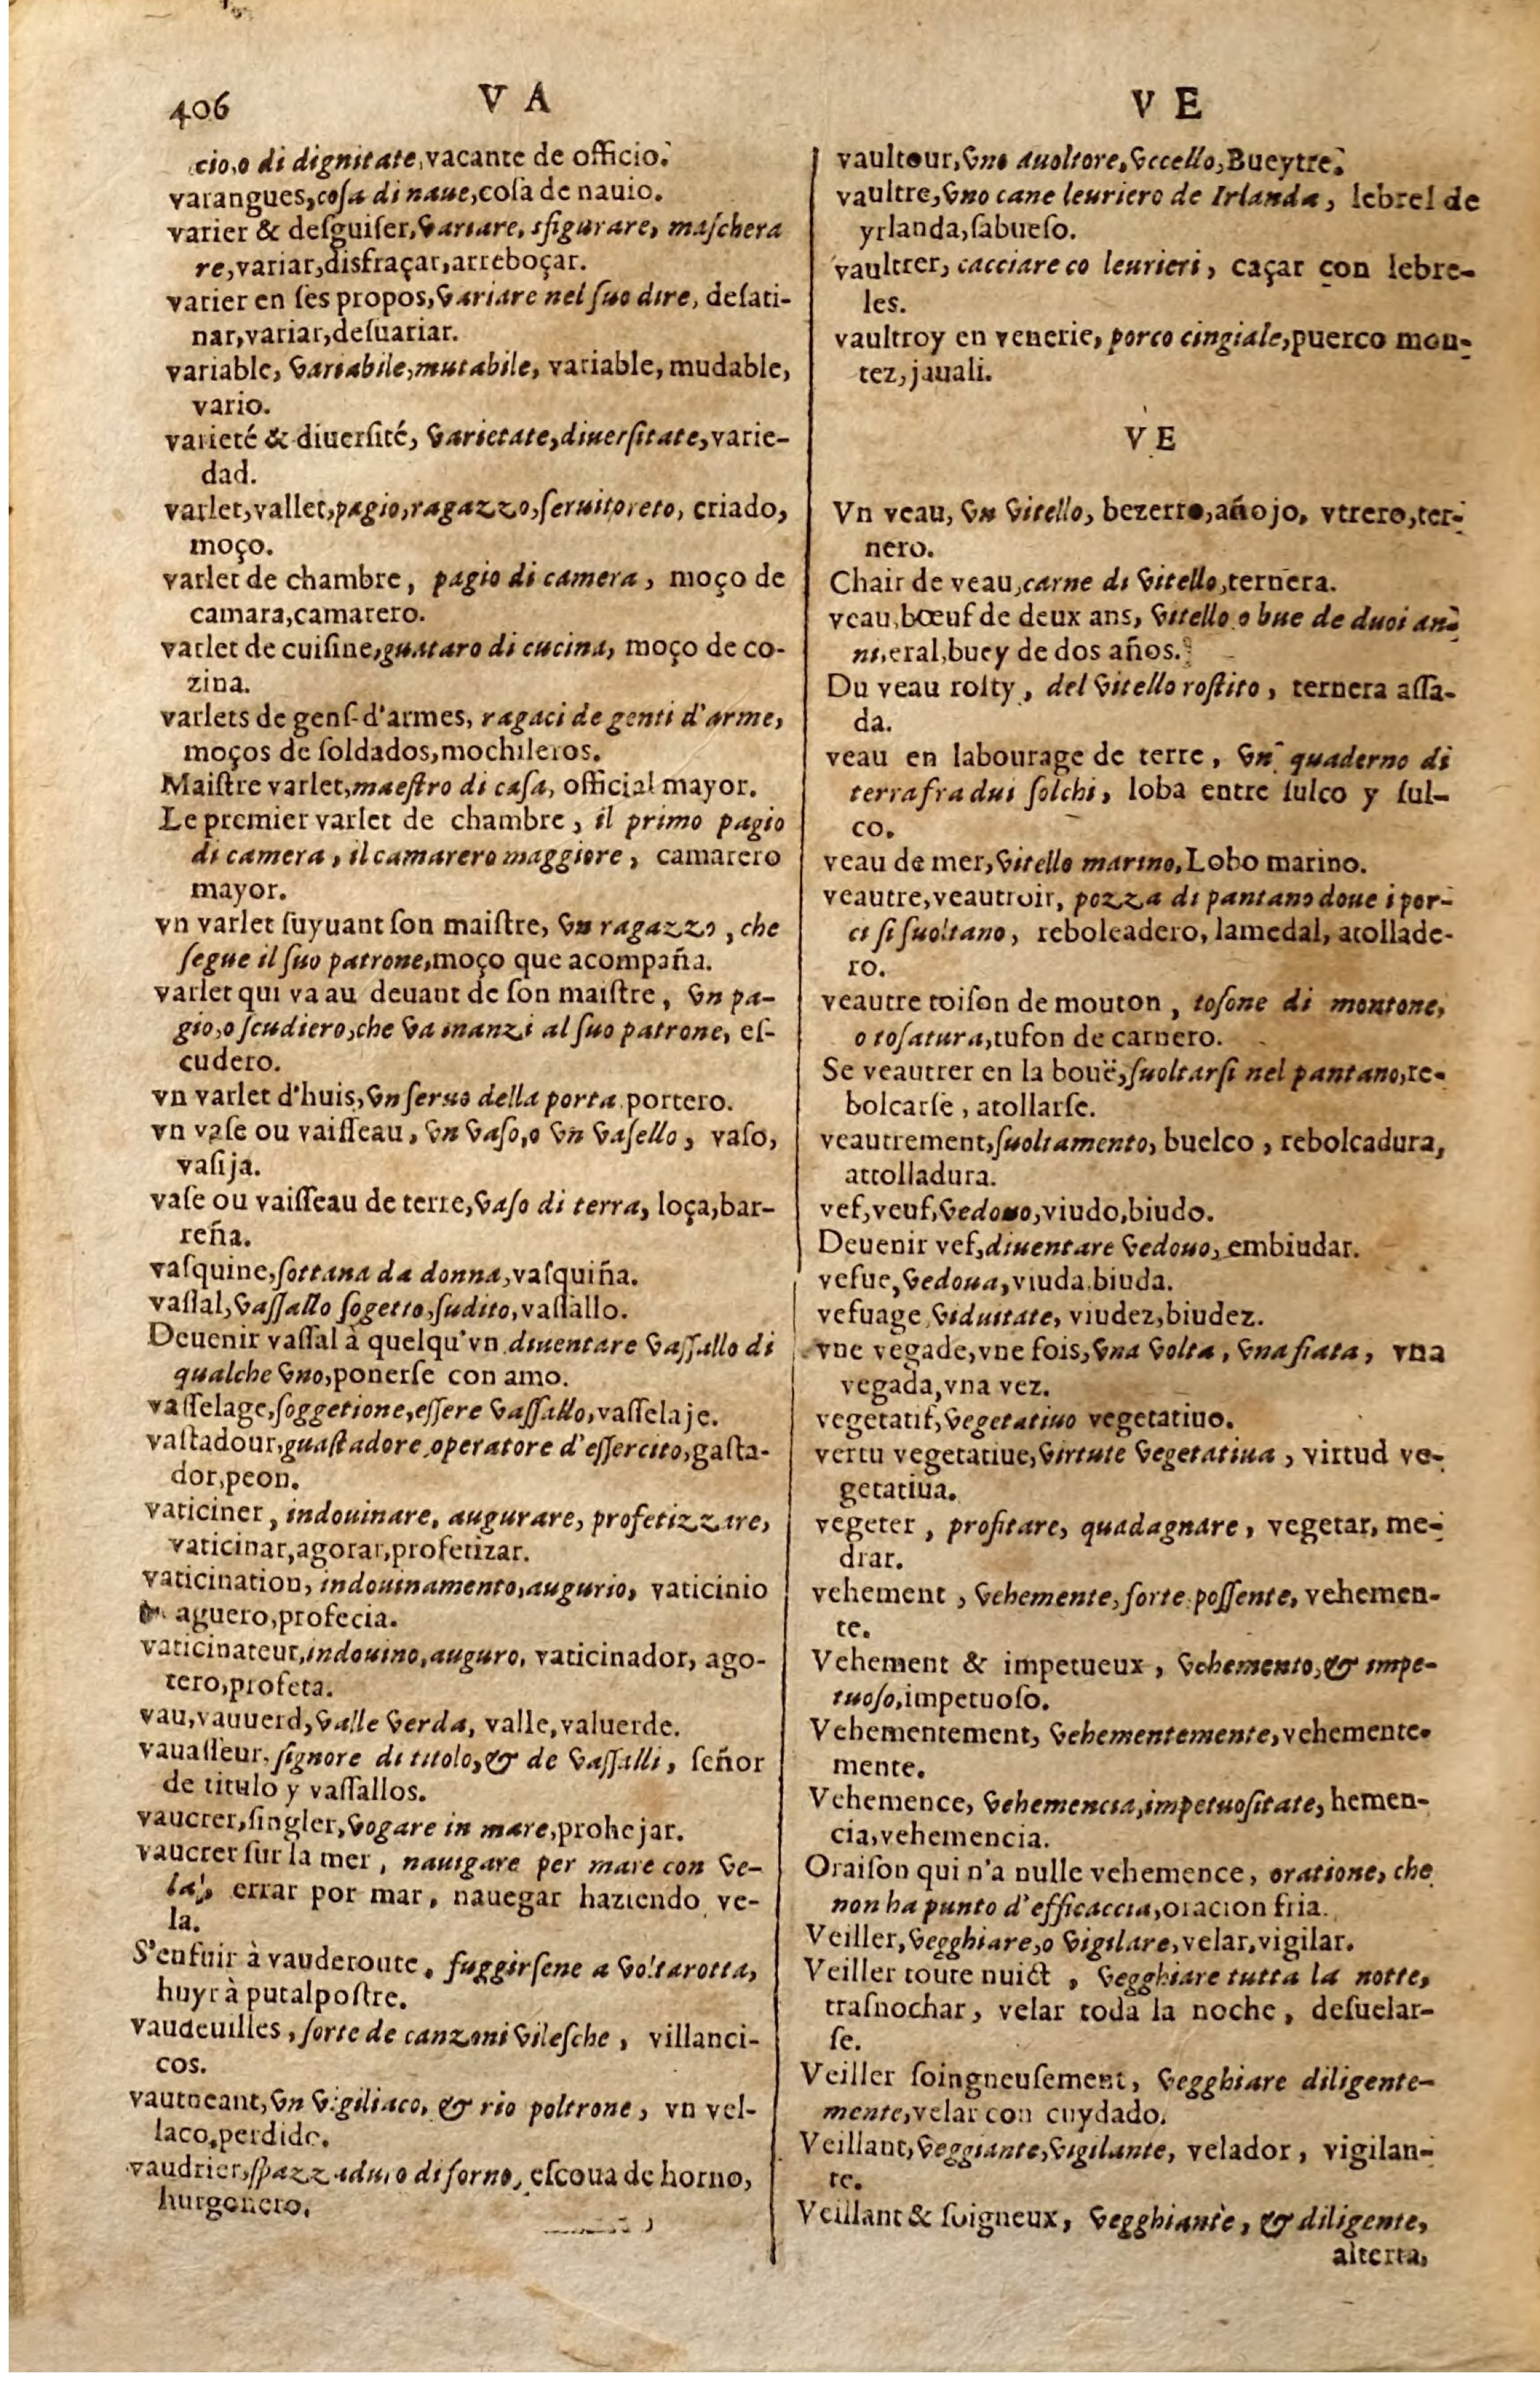 406
V A
cio, o di dignitate, vacante de officio.
varangues, coſa di naue, coſa de nauio.
varier & deſguiſer, variare, sfigurare, maſchera
re, variar, disfraçar, arreboçar.
varier en ſes propos, variare nel ſuo dire, deſati-
nar, variar, deſuariar.
variable, variabile, mutabile, variable, mudable,
vario.
varieté & diuerſité, varietate, diuerſitate, varie-
dad.
varlet, vallet, pagio, ragazzo, ſeruitoreto, criado,
moço.
varlet de chambre, pagio di camera, moço de
camara, camarero.
varlet de cuiſine, guataro di cucina, moço de co-
zina.
varlets de genſ-d'armes, ragaci de genti d'arme,
moços de ſoldados, mochileros.
Maiſtre varlet, maeſtro di caſa, official mayor.
Le premier varlet de chambre, il primo pagio
di camera, il camarero maggiore, camarero
mayor.
vn varlet ſuyuant ſon maiſtre, vn ragazzo, che
ſegue il ſuo patrone, moço que acompaña.
varlet qui va au deuant de ſon maiſtre, vn pa-
gio, o ſcudiero, che va inanzi al ſuo patrone, eſ-
cudero.
vn varlet d'huis, vn ſeruo della porta portero.
vn vaſe ou vaiſſeau, vn vaſo, o vn vaſello, vaſo,
vaſija.
vaſe ou vaiſſeau de terre, vaſo di terra, loça, bar-
reña.
vaſquine, ſottana da donna, vaſquiña.
vaſſal, vaſſallo ſogetto, ſudito, vaſſallo.
Deuenir vaſſal à quelqu'vn diuentare vaſſallo di
qualche vno, ponerſe con amo.
vaſſelage, ſoggetione, eſſere vaſſallo, vaſſelaje.
vaſtadour, guaſtadore operatore d'eſſercito, gaſta-
dor, peon.
vaticiner, indouinare, augurare, profetizzare,
vaticinar, agorar, profetizar.
vaticination, indouinamento, augurio, vaticinio
aguero, profecia.
vaticinateur, indouino, auguro, vaticinador, ago-
rero, profeta.
vau, vauuerd, valle verda, valle, valuerde.
vauaſſeur, ſignore di titolo, & de vaſſalli, ſeñor
de titulo y vaſſallos.
vaucrer, ſingler, vogare in mare, prohejar.
vaucrer ſur la mer, nauigare per mare con ve-
la, errar por mar, nauegar haziendo ve-
la.
S'enfuir à vauderoute, fuggirſene a voltarotta,
huyr à putalpoſtre.
vaudeuilles, ſorte de canzoni vileſche, villanci-
cos.
vautneant, vn vigiliaco, & rio poltrone, vn vel-
laco, perdido.
vaudrier, ſpazzaduro di forno, eſcoua de horno,
hurgonero.
V E
vaultour, vno auoltore, vccello, Bueytre.
vaultre, vno cane leuriero de Irlanda, lebrel de
yrlanda, ſabueſo.
vaultrer, cacciare co leurieri, caçar con lebre-
les.
vaultroy en venerie, porco cingiale, puerco mon-
tez, jauali.
V E
Vn veau, vn vitello, bezerro, añojo, vtrero, ter-
nero.
Chair de veau, carne di vitello, ternera.
veau, bœuf de deux ans, vitello o bue de duoi an-
ni, eral, buey de dos años.
Du veau roſty, del vitello roſtito, ternera aſſa-
da.
veau en labourage de terre, vn quaderno di
terra fra dui ſolchi, loba entre ſulco y ſul-
co.
veau de mer, vitello marino, Lobo marino.
veautre, veautroir, pozza di pantano doue i por-
ci ſi ſuoltano, reboleadero, lamedal, atollade-
ro.
veautre toiſon de mouton, toſone di montone,
o toſatura, tuſon de carnero.
Se veautrer en la bouë, ſuoltarſi nel pantano, re-
bolcarſe, atollarſe.
veautrement, ſuoltamento, buelco, rebolcadura,
attolladura.
vef, veuf, vedouo, viudo, biudo.
Deuenir vef, diuentare vedouo, embiudar.
vefue, vedoua, viuda, biuda.
vefuage, viduitate, viudez, biudez.
vne vegade, vne fois, vna volta, vna fiata, vna
vegada, vna vez.
vegetatif, vegetatiuo vegetatiuo.
vertu vegetatiue, virtute vegetatiua, virtud ve-
getatiua.
vegeter, profitare, quadagnare, vegetar, me-
drar.
vehement, vehemente, forte poſſente, vehemen-
te.
Vehement & impetueux, vehemento, & impe-
tuoſo, impetuoſo.
Vehementement, vehementemente, vehemente-
mente.
Vehemence, vehemencia, impetuoſitate, hemen-
cia, vehemencia.
Oraiſon qui n'a nulle vehemence, oratione, che
non ha punto d'efficaccia, oracion fria.
Veiller, vegghiare, o vigilare, velar, vigilar.
Veiller toute nuict, vegghiare tutta la notte,
traſnochar, velar toda la noche, deſuelar-
ſe.
Veiller ſoingneuſement, vegghiare diligente-
mente, velar con cuydado.
Veillant, veggiante, vigilante, velador, vigilan-
te.
Veillant & ſoigneux, vegghiante, & diligente,
alterta,